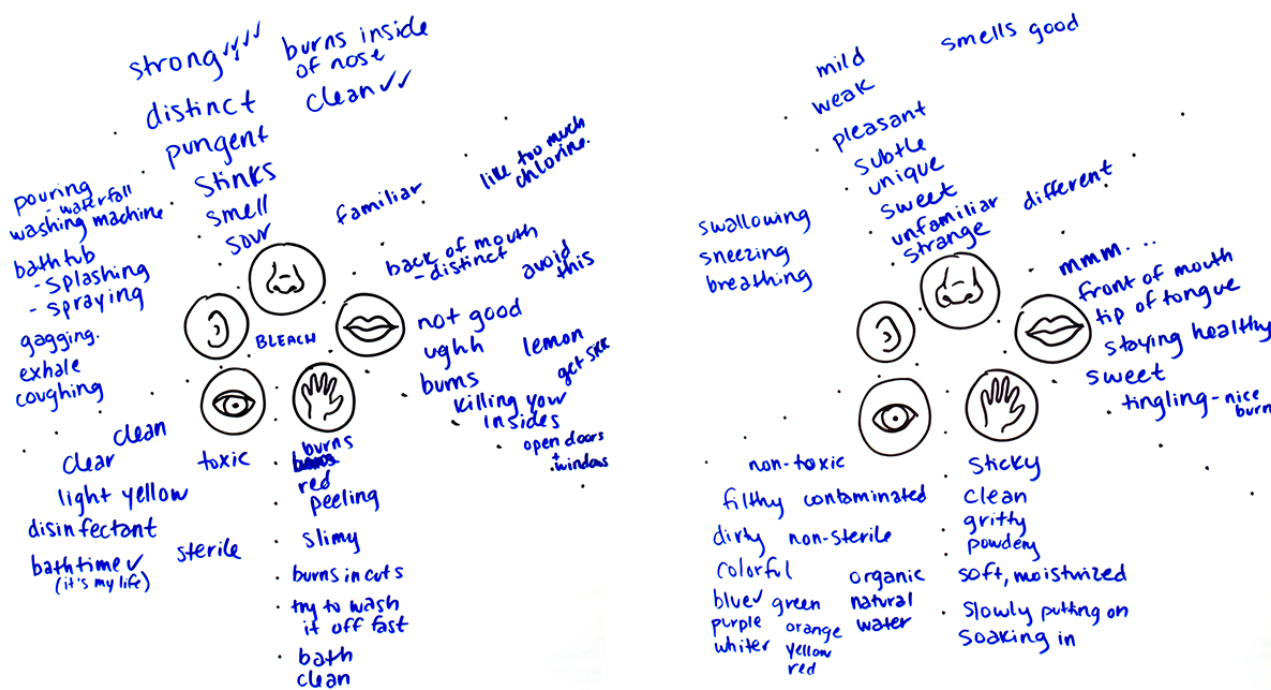 strong ✓✓✓✓
burns inside
of nose
distinct
clean ✓✓
pungent
stinks
smell
sour
familiar
like too much
chlorine.
pouring
- waterfall
washing machine
bathtub
- splashing
- spraying
gagging.
exhale
coughing
BLEACH
back of mouth
- distinct
avoid
this
not good
ughh
lemon
burns
get sick
killing your
insides
open doors
+
windows
clean
clear
toxic
light yellow
disinfectant
bathtime ✓
(it's my life)
sterile
burns
red
peeling
slimy
burns in cuts
try to wash
it off fast
bath
clean
smells good
mild
weak
pleasant
subtle
unique
sweet
unfamiliar
strange
different
swallowing
sneezing
breathing
mmm...
front of mouth
tip of tongue
staying healthy
sweet
tingling - nice
burn
non-toxic
filthy contaminated
dirty non-sterile
colorful
organic
blue ✓ green
natural
purple orange
water
white yellow
red
sticky
clean
gritty
powdery
soft, moisturized
slowly putting on
soaking in